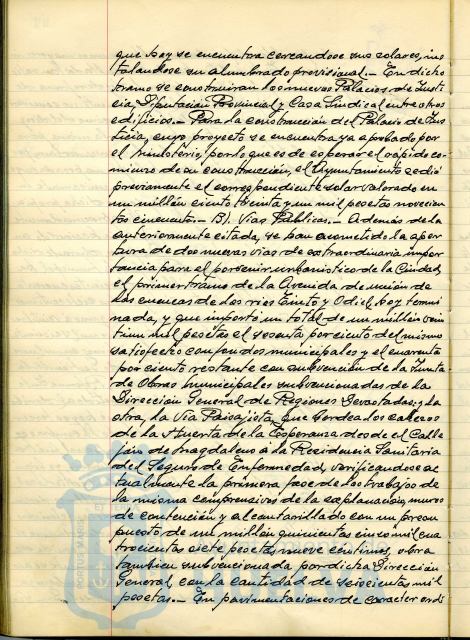 que hoy se encuentra cercandose sus solares, ins
talandose su alumbrado provisional.- En dicho
tramo se construiran los nuevos Palacios de Justi
cia, Diputación Provincial y Casa Sindical entre otros
edificios.- Para la construcción del Palacio de Jus
ticia, cuyo proyecto se encuentra ya aprobado por
el Ministerio, por lo que es de esperar el rápido co
mienzo de su construcción, el Ayuntamiento cedió
previamente el correspondiente solar valorado en
un millón ciento treinta y un mil pesetas novecien
tos cincuenta.- B). Vias Publicas.- Además de la
anteriormente citada, se han acometido la aper
tura de dos nuevas vias de extraordinaria impor
tancia para el porvenir urbanistico de la Ciudad,
el primer tramo de la Avenida de unión de
las cuencas de los rios Tinto y Odiel, hoy termi
nada, y que importó un total de un millón vein
tiun mil pesetas el sesenta por ciento del mismo
satisfecho con fondos municipales y el cuarenta
por ciento restante con subvención de la Junta
de Obras municipales subvencionadas de la
Dirección General de Regiones Devastadas; y la
otra, la Via Paisajista, que bordea los cabezos
de la Huerta de la Esperanza desde el Calle
jón de Magdalena a la Residencia Sanitaria
del Seguro de Enfermedad, verificandose ac
tualmente la primera fase de los trabajos de
la misma comprensivos de la explanación, muros
de contención y alcantarillado con un presu
puesto de un millón quinientas cinco mil cua
trocientas siete pesetas, nueve centimos, obra
tambien subvencionada por dicha Dirección
General, con la cantidad de seiscientas mil
pesetas.- En pavimentaciones de caracter ordi
PORTUS MARIS